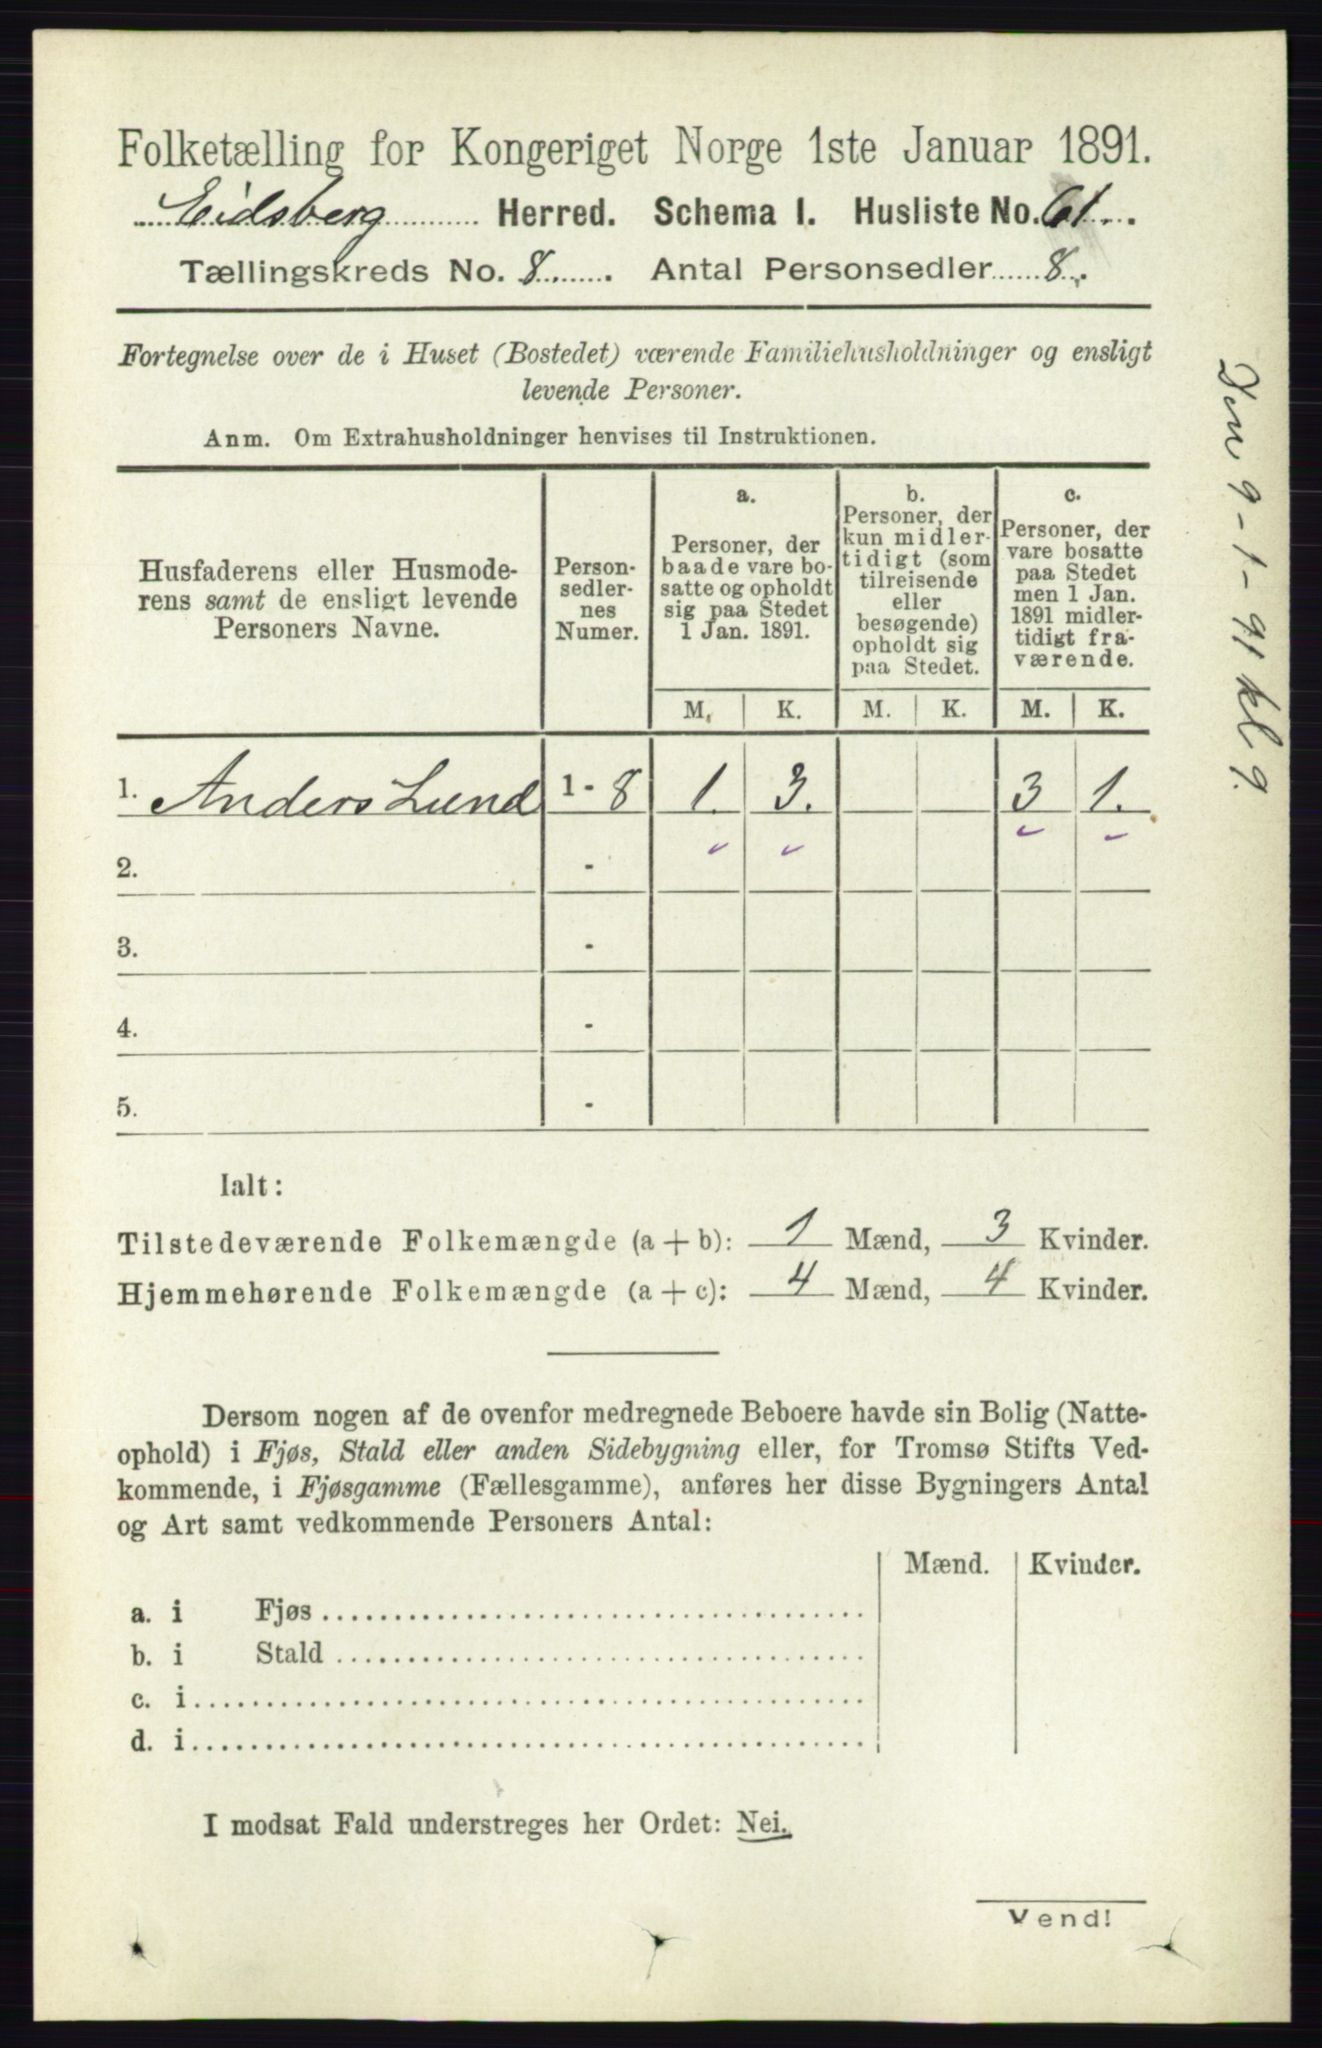 Folketælling for Kongeriget Norge 1ste Januar 1891.
Eidsberg Herred. Schema I. Husliste No. 61.
Tællingskreds No. 8. Antal Personsedler 8.
Fortegnelse over de i Huset (Bostedet) værende Familiehusholdninger og ensligt
levende Personer.
Anm. Om Extrahusholdninger henvises til Instruktionen.
Husfaderens eller Husmode-
rens samt de ensligt levende
Personers Navne.
Person-
sedler-
nes
Numer.
a.
Personer, der
baade vare bo-
satte og opholdt
sig paa Stedet
1 Jan. 1891.
b.
Personer, der
kun midler-
tidigt (som
tilreisende
eller
besøgende)
opholdt sig
paa Stedet.
c.
Personer, der
vare bosatte
paa Stedet
men 1 Jan.
1891 midler-
tidigt fra-
værende.
M. K. M. K. M. K.
1. Anders Lund 1 - 8 1. 3. 3 1.
2. -
3. -
4. -
5. -
Ialt:
Tilstedeværende Folkemængde (a + b): 1 Mænd, 3 Kvinder.
Hjemmehørende Folkemængde (a + c): 4 Mænd, 4 Kvinder.
Dersom nogen af de ovenfor medregnede Beboere havde sin Bolig (Natte-
ophold) i Fjøs, Stald eller anden Sidebygning eller, for Tromsø Stifts Ved-
kommende, i Fjøsgamme (Fællesgamme), anføres her disse Bygningers Antal
og Art samt vedkommende Personers Antal:
Mænd. Kvinder.
a. i Fjøs
b. i Stald
c. i
d. i
I modsat Fald understreges her Ordet: Nei.
Vend!
Den 9-1-91 kl 9.